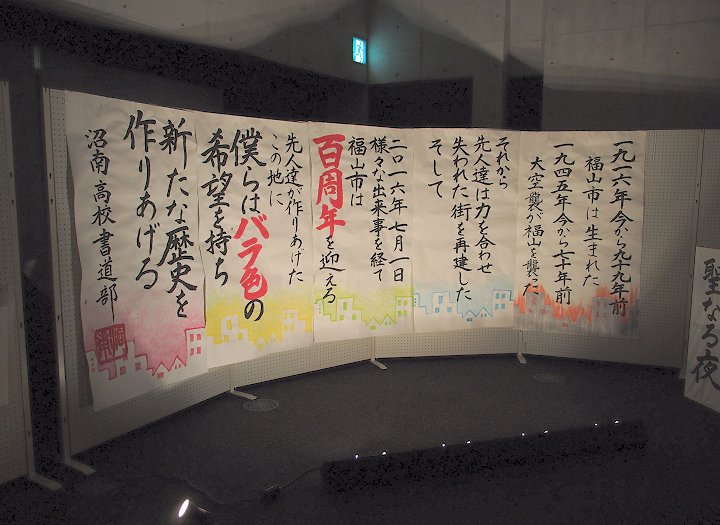 一九一六年今から九十九年前
福山市は生まれた
一九四五年今から七十年前
大空襲が福山を襲った
それから
先人達は力を合わせ
失われた街を再建した
そして
二〇一六年七月一日
様々な出来事を経て
福山市は
百周年を迎える
先人達が作りあげた
この地に
僕らはバラ色の
希望を持ち
新たな歴史を
作りあげる
沼南高校書道部
聖なる夜